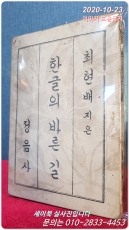 2020-10-23
최현배 지은
한글의 바른 길
정음사
세이북 실사진입니다
문의는 010-2833-4453